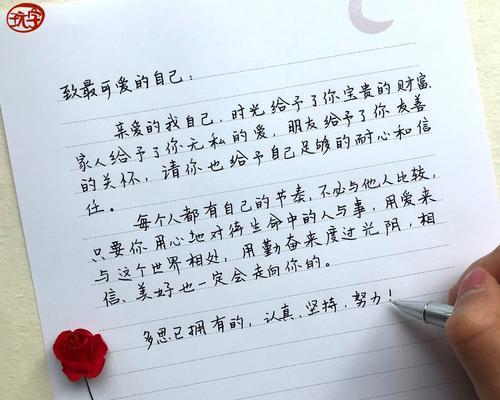 玩字
致最可爱的自己：
亲爱的我自己，时光给予了你宝贵的财富，
家人给予了你无私的爱，朋友给予了你友善
的关怀，请你也给予自己足够的耐心和信
任。
每个人都有自己的节奏，不必与他人比较，
只要你用心地对待生命中的人与事，用爱来
与这个世界相处，用勤奋来度过光阴，相
信，美好也一定会走向你的。
多思已拥有的，认真，坚持，努力！